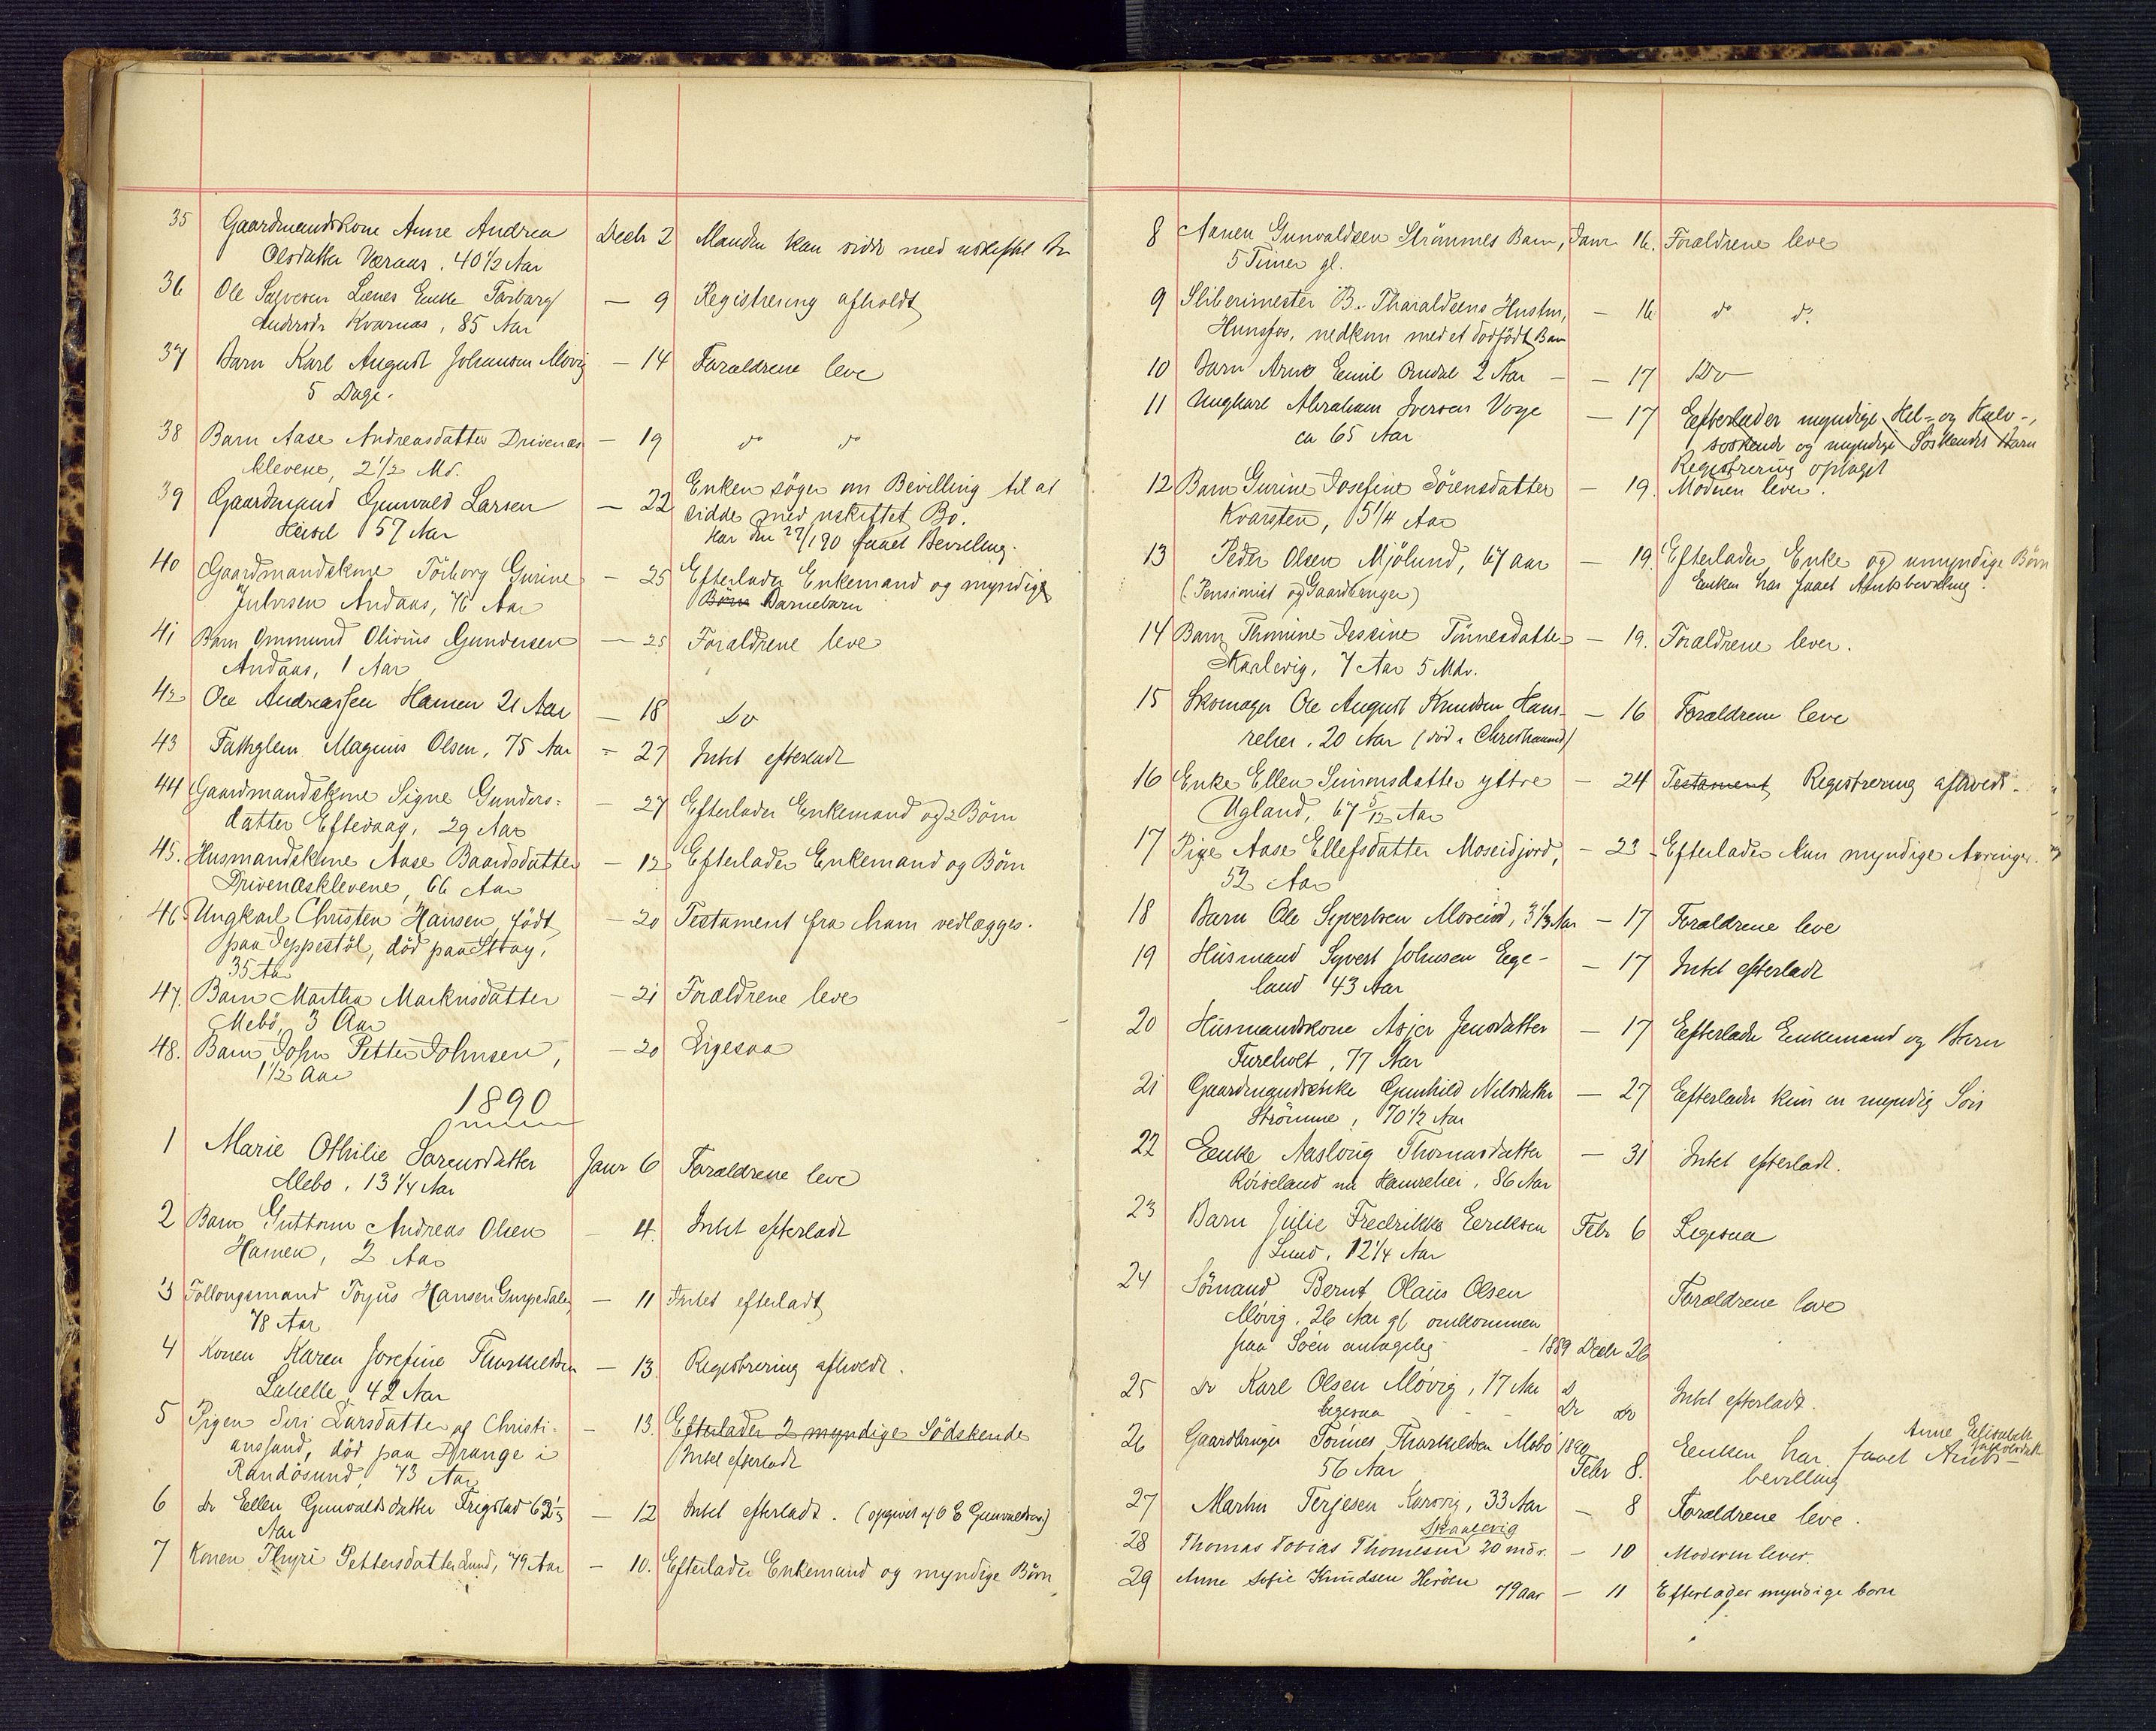 35 Gaardmandskone Anne Andrea Decbr 2 Manden kan sidde med uskiftet Bo
Olsdatter Væraas, 40 1/2 Aar
36 Ole Salvesen Lænes Enke Torborg — 9 Registrering afholdt
Andersdr Kvarnes, 85 Aar
37 Barn Karl August Johansen Møvig — 14 Forældrene leve
5 Dage.
38 Barn Aase Andreasdatter Drivenæs — 19 do do
klevene, 2 1/2 Md.
39 Gaardmand Gunvald Larsen — 22 Enken søger om Bevilling til at
sidde med uskiftet Bo.
57 Aar
Har den 22/1 90 faaet Bevilling.
40 Gaardmandskone Torborg Gurine — 25 Efterlader Enkemand og myndige
Andaas, 76 Aar Børn Barnebarn
41 Barn Ommund Olivius Gundersen — 25 Forældrene leve
Andaas, 1 Aar
42 Ole Andreassen Hamen 21 Aar — 18 Do
43 Fattiglem Magnus Olsen, 75 Aar — 27 Intet efterladt
44 Gaardmandskone Signe Gunders- — 27 Efterlader Enkemand og 2 Børn
datter Eftevaag, 29 Aar
45. Husmandskone Aase Baardsdatter — 12 Efterlader Enkemand og Børn
Drivenæsklevene, 66 Aar
46 Ungkarl Christen Hansen, født — 20 Testament fra ham vedlægges.
paa Jeppestøl, død paa Stray,
35 Aar
47. Barn Martha Markusdatter — 21 Forældrene leve
Mebø, 3 Aar
48. Barn John Petter Johnsen, — 20 Ligesaa
1 1/2 Aar
1890
1 Marie Othilie Sørensdatter Janr 6 Forældrene leve
Mebø, 13 1/4 Aar
2 Barn Guttorm Andreas Olsen — 4. Intet efterladt
Hamen, 2 Aar
3 Follougsmand Torjus Hansen Gumpedalen — 11 Intet efterladt
78 Aar
4 Konen Karen Josefine Thorkildsen — 13. Registrering afholdt.
42 Aar
5 Pigen Siri Larsdatter af Christi- — 13. Efterlader 2 myndige Södskende
anssand, død paa Drange i Intet efterladt
Randøsund, 73 Aar
6 do Ellen Gunvaldsdatter Frigstad — 12 Intet efterladt. (opgivet af O E Gunvaldsen)
Aar
7 Konen Thyri Pettersdatter Lund, 79 Aar — 10. Efterlader Enkemand og myndige Börn
8 Aanen Gunvaldsen Strömmes Barn, Janr 16. Forældrene leve
5 Timer gl.
9 Sliberimester B. Tharaldsens Hustru, — 16 do do.
Hunsfos, nedkom med et dødfødt Barn
10 Barn Arne Emil Omdal 2 Aar — — 17 Do
11 Ungkarl Abraham Iversen Voge — 17 Efterlader myndige Hel- og Halv-
ca 65 Aar søskende og myndige Søskendes Børn
Registrering optaget
12 Barn Gurine Josefine Sörensdatter — 19. Moderen lever.
Kvarsten, 5 1/4 Aar
13 Peder Olsen Mjölund, 67 aar — 19. Efterlader Enke og umyndige Börn
(Pensionist og Gaardbruger) Enken har faaet Amtsbevilling.
14 Barn Thomine Jessine Tönnesdatter — 19. Forældrene lever.
7 Aar 5 Mdr.
15 Skomager Ole August Knudsen Ham- — 16 Forældrene leve
rehei, 20 Aar (død i Christiansand)
16 Enke Ellen Simonsdatter yttre — 24 Testament Registrering afholdt.
Ugland, 67 5/12 Aar
17 Pige Aase Ellefsdatter Moseidjord, — 23 Efterlader kun myndige Arvinger.
52 Aar
18 Barn Ole Syvertsen Moseid, 3 1/3 Aar — 17 Forældrene leve
19 Husmand Syvert Johnsen Ege- — 17 Intet efterladt
land 43 Aar
20 Husmandskone Asjer Jensdatter — 17 Efterlader Enkemand og Børn
Fureholt, 77 Aar
21 Gaardmandsenke Gunhild Nilsdatter — 27 Efterlader kun en myndig Søn
Strömme, 70 1/2 Aar
22 Enke Aaslaug Thomasdatter — 31 Intet efterladt.
Røiseland nu Hamrehei, 86 Aar
23 Barn Julie Fredrikke Eriksen Febr 6 Ligesaa
Lund, 12 1/4 Aar
24 Sömand Bernt Olaus Olsen Forældrene leve
Møvig, 26 Aar gl omkommen
paa Søen antagelig — 1889 Decbr 26
25 do Karl Olsen Møvig, 17 Aar Do do Intet efterladt.
ligesaa
26 Gaardbruger Tönnes Thorkildsen Mebø 1890 Febr 8. Enken har faaet Amts-
Anne Elisabeth
56 Aar bevilling
27 Martin Terjesen Korsvig, 33 Aar — 8 Forældrene leve.
28 Thomas Tobias Thomesen Skaalevig 20 mdr. — 10 Moderen lever.
29 Anne Sofie Knudsen Herøen 79 aar — 11 Efterlader myndige børn